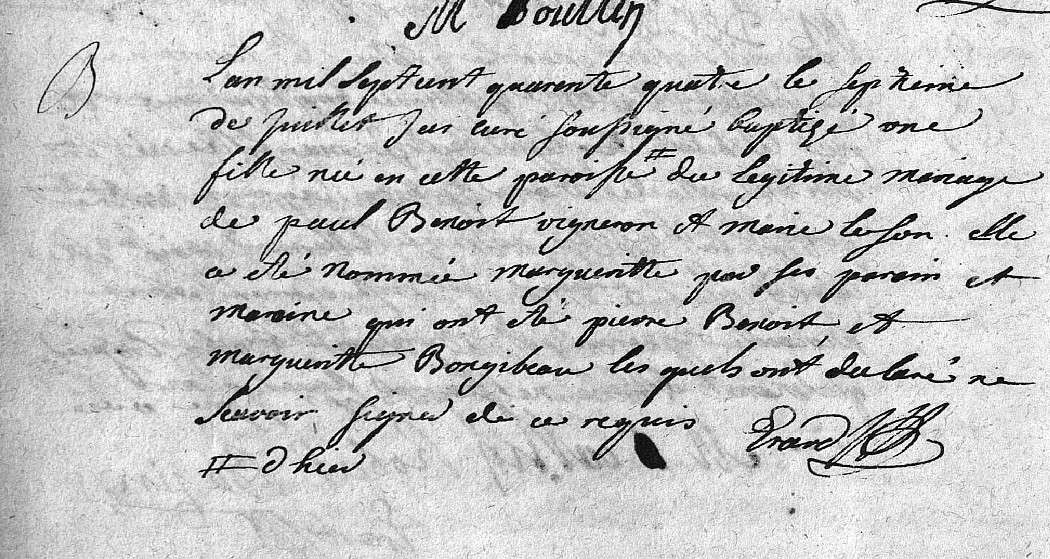 M Boullin
B
L'an mil sept cent quarente quatre le septieme
de juillet J'ai curé soussigné baptizé une
fille née en cette paroisse # du legitime mariage
de paul Benoit vigneron et marie lesson. elle
a eté nommée margueritte par ses parein et
mareine qui ont eté pierre Benoit et
margueritte Bongibeau les quels ont declaré ne
scavoir signer de ce requis Erard
# d'hier